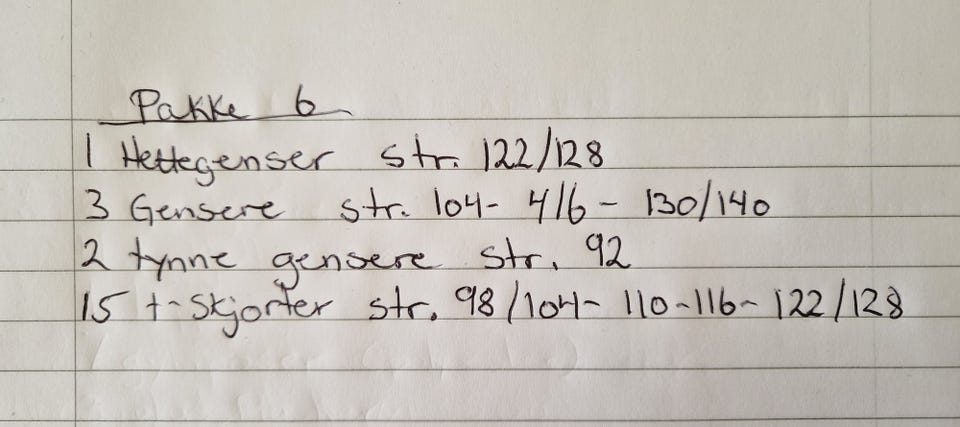 Pakke 6
1 Hettegenser str. 122/128
3 Gensere str. 104- 4/6- 130/140
2 tynne gensere str. 92
15 t-skjorter str. 98/104- 110-116- 122/128